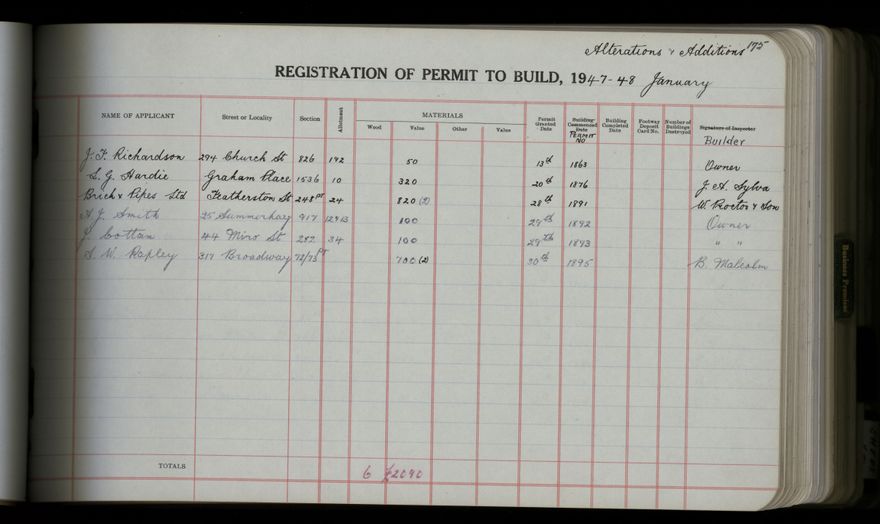 Alterations & Additions 175
REGISTRATION OF PERMIT TO BUILD, 1947-48 January
NAME OF APPLICANT Street or Locality Section Allotment MATERIALS Permit Granted Date Building Commenced Date PERMIT NO Building Completed Date Footway Deposit Card No. Number of Buildings Destroyed Signature of Inspector Builder
Wood Value Other Value
J. F. Richardson 294 Church St 326 192 50 13th 1863 Owner
S. G. Hardie Graham Place 1536 10 320 20th 1876 J. A. Sylva
Brick & Pipes Ltd Featherston St 248 PT 24 820 (2) 28th 1891 W. Proctor & Son
A. J. Smith 25 Summerhay 917 100 29th 1892 Owner
J. Cottan 44 Miro St 282 34 100 29th 1893 " "
S. W. Rapley 317 Broadway 72/73 PT 700 (2) 30th 1895 B. Malcolm
TOTALS 6 £2090
Business Premises